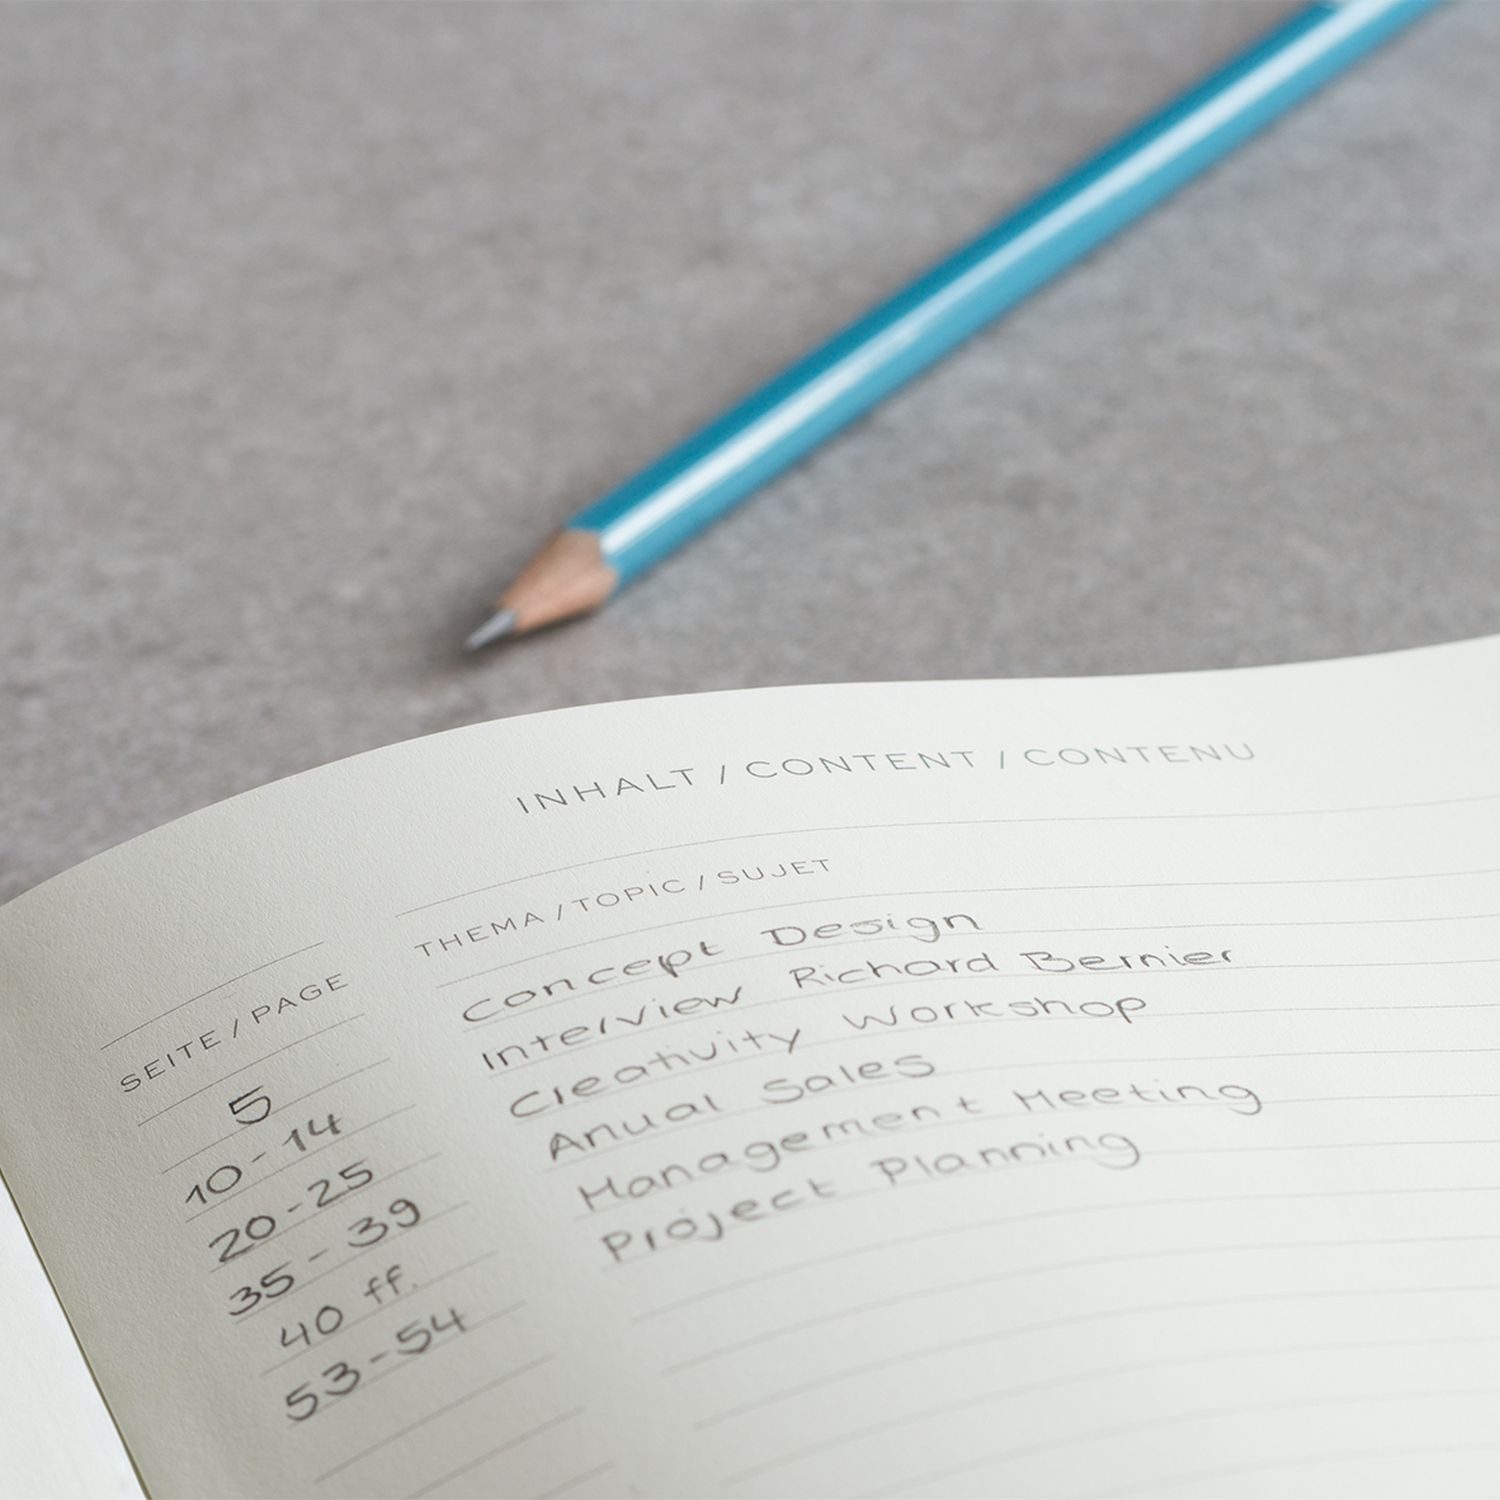 INHALT / CONTENT / CONTENU
SEITE / PAGE THEMA / TOPIC / SUJET
5 Concept Design
10-14 Interview Richard Bernier
20-25 Creativity Workshop
35-39 Anual Sales
40 ff. Management Meeting
53-54 Project Planning